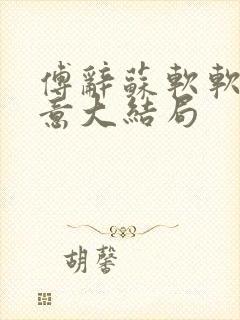 傅辭蘇軟軟
意大結局
胡馨